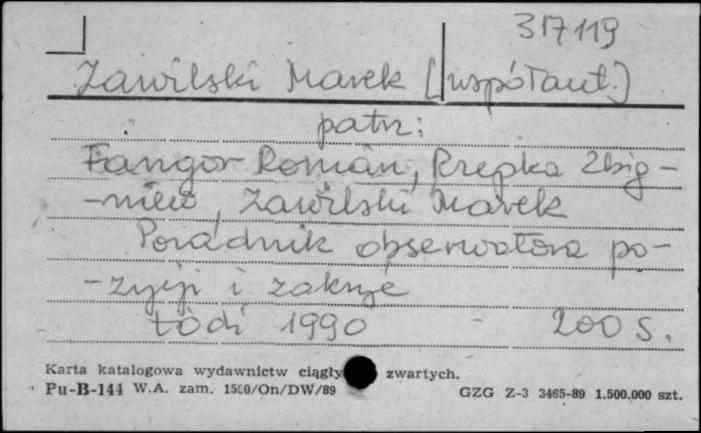 317119
Zawilski Marek (współaut.)
patrz:
Fangor Roman, Rzepka Zbig-
-niew, Zawilski Marek
Poradnik obserwatora po-
-zycji i zakryć
Łódź 1990 - 200 s.
Karta katalogowa wydawnictw ciągły zwartych.
Pu-B-144 W.A. zam. 1500/On/DW/89 GZG Z-3 3465-89 1.500.000 szt.